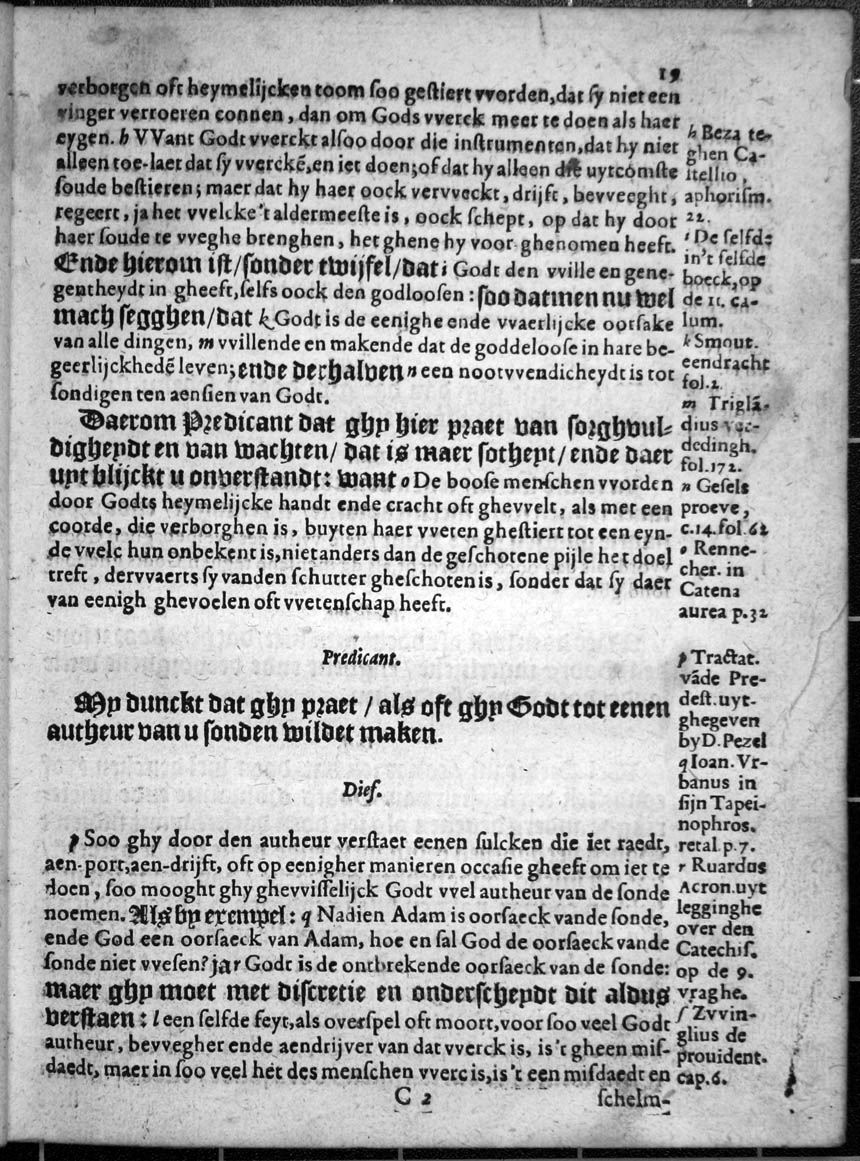 19
verborgen oft heymelijcken toom soo gestiert vvorden, dat sy niet een
vinger verroeren connen, dan om Gods vverck meer te doen als haer
eygen. h VVant Godt vverckt alsoo door die instrumenten, dat hy niet
alleen toe-laet dat sy vverckẽ, en iet doen; of dat hy alleen die uytcomste
soude bestieren; maer dat hy haer oock vervveckt, drijft, bevveeght,
regeert, ja het vvelcke 't aldermeeste is, oock schept, op dat hy door
haer soude te vveghe brenghen, het ghene hy voor ghenomen heeft.
Ende hierom ist/ sonder twijfel/ dat i Godt den vville en gene-
gentheydt in gheeft, selfs oock den godloosen: soo datmen nu wel
mach segghen/ dat k Godt is de eenighe ende vvaerlijcke oorsake
van alle dingen, m vvillende en makende dat de goddeloose in hare be-
geerlijckhedẽ leven; ende derhalven n een nootvvendicheydt is tot
sondigen ten aensien van Godt.
Daerom Predicant dat ghy hier praet van sorghvul-
digheydt en van wachten/ dat is maer sotheyt/ ende daer
uyt blijckt u onverstandt: want o De boose menschen vvorden
door Godts heymelijcke handt ende cracht oft ghevvelt, als met een
coorde, die verborghen is, buyten haer vveten ghestiert tot een eyn-
de vvelc hun onbekent is, niet anders dan de geschotene pijle het doel
treft, dervvaerts sy vanden schutter gheschoten is, sonder dat sy daer
van eenigh ghevoelen oft vvetenschap heeft.
Predicant.
My dunckt dat ghy praet/ als oft ghy Godt tot eenen
autheur van u sonden wildet maken.
Dief.
p Soo ghy door den autheur verstaet eenen sulcken die iet raedt,
aen-port, aen-drijft, oft op eenigher manieren occasie gheeft om iet te
doen, soo mooght ghy ghevvisselijck Godt vvel autheur van de sonde
noemen. Als by exempel: q Nadien Adam is oorsaeck vande sonde,
ende God een oorsaeck van Adam, hoe en sal God de oorsaeck vande
sonde niet vvesen? ja r Godt is de ontbrekende oorsaeck van de sonde:
maer ghy moet met discretie en onderscheydt dit aldus
verstaen: s een selfde feyt, als overspel oft moort, voor soo veel Godt
autheur, bevvegher ende aendrijver van dat vverck is, is 't gheen mis-
daedt, maer in soo veel het des menschen vverc is, is 't een misdaedt en
C 2
schelm-
h Beza te-
ghen Ca-
stellio,
aphorism.
22.
i De selfde
in't selfde
boeck, op
de 11. ca-
lum.
k Smout.
eendracht
fol. 2
m Triglã-
dius ver-
dedingh.
fol. 172.
n Gesels
proeve,
c. 14. fol. 62
o Renne-
cher. in
Catena
aurea p. 32
p Tractat.
vãde Pre-
dest. uyt-
ghegeven
by D. Pezel
q Ioan. Vr-
banus in
sijn Tapei-
nophros.
retal. p. 7.
r Ruardus
Acron. uyt
legginghe
over den
Catechis.
op de 9.
vraghe.
s Zvvin-
glius de
prouident.
cap. 6.